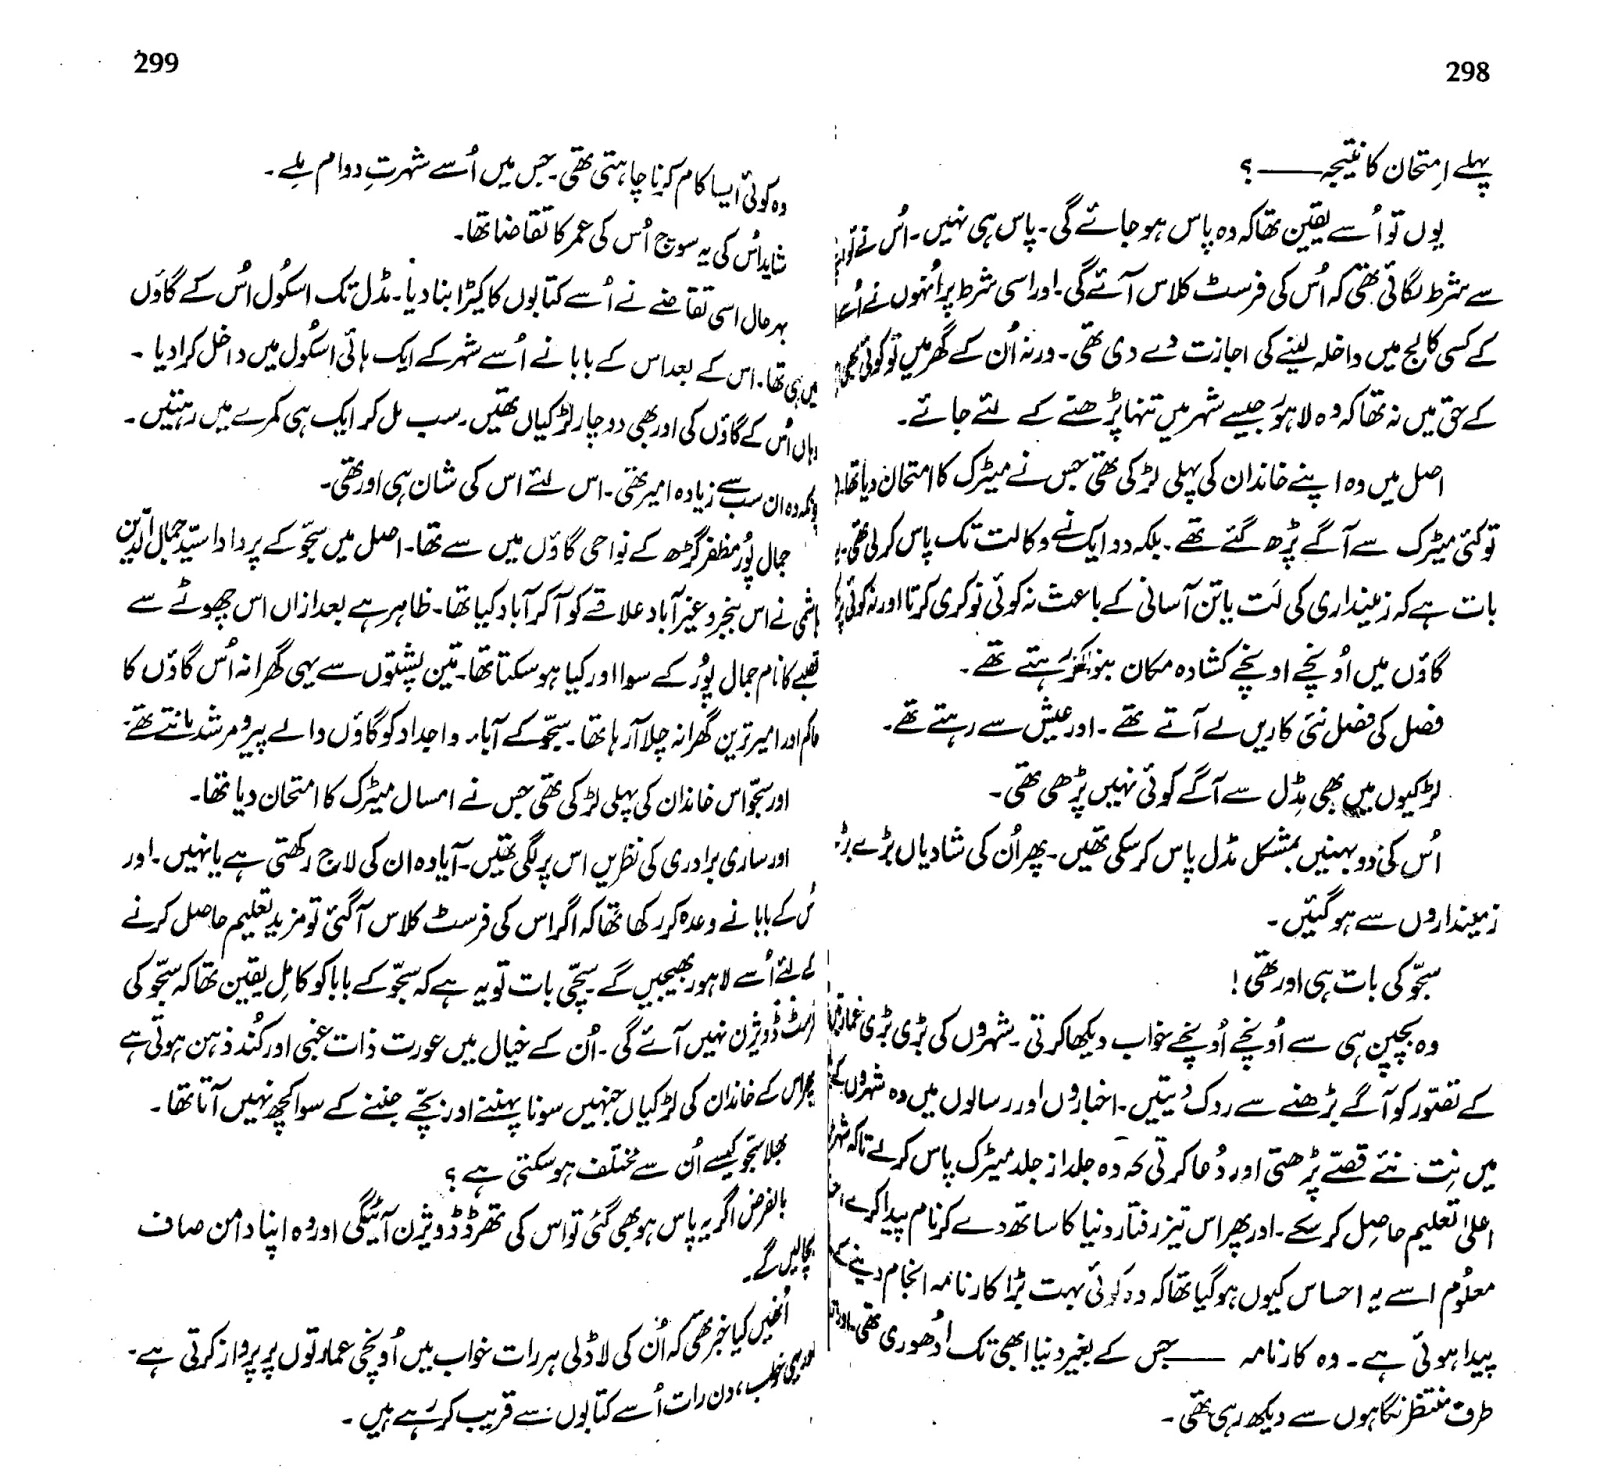 298
پہلے اِمتحان کا نتیجہ ——— ؟
یوں تو اُسے یقین تھا کہ وہ پاس ہو جائے گی۔ پاس ہی نہیں۔ اُس نے تو
سے شرط لگائی تھی کہ اُس کی فرسٹ کلاس آئے گی۔ اور اسی شرط پر اُنہوں نے اُسے
کے کسی کالج میں داخلہ لینے کی اجازت دے دی تھی۔ ورنہ اُن کے گھر میں تو کوئی بھی
کے حق میں نہ تھا کہ وہ لاہور جیسے شہر میں تنہا پڑھنے کے لئے جائے۔
اصل میں وہ اپنے خاندان کی پہلی لڑکی تھی جس نے میٹرک کا امتحان دیا تھا۔
تو کئی میٹرک سے آگے پڑھ گئے تھے۔ بلکہ دو ایک نے وکالت تک پاس کر لی تھی۔
بات ہے کہ زمینداری کی لَت یا تن آسانی کے باعث نہ کوئی نوکری کرتا اور نہ کوئی
گاؤں میں اُونچے اونچے کشادہ مکان بنوا کر رہتے تھے۔
فصل کی فصل نئی کاریں لے آتے تھے۔ اور عیش سے رہتے تھے۔
لڑکیوں میں بھی مڈل سے آگے کوئی نہیں پڑھی تھی۔
اُس کی دو بہنیں بمشکل مڈل پاس کر سکی تھیں۔ پھر اُن کی شادیاں بڑے بڑے
زمینداروں سے ہو گئیں۔
سجّو کی بات ہی اور تھی!
وہ بچپن ہی سے اُونچے اُونچے خواب دیکھا کرتی۔ شہروں کی بڑی بڑی عمارتیں
کے تصوّر کو آگے بڑھنے سے روک دیتیں۔ اخباروں اور رسالوں میں وہ شہروں کے
میں نِت نئے قصّے پڑھتی اور دُعا کرتی کہ وہ جلد از جلد میٹرک پاس کر لے تاکہ شہر
اعلیٰ تعلیم حاصل کر سکے۔ اور پھر اس تیز رفتار دنیا کا ساتھ دے کر نام پیدا کرے۔
معلُوم اسے یہ احساس کیوں ہو گیا تھا کہ وہ کوئی بہت بڑا کارنامہ انجام دینے کے
پیدا ہوئی ہے۔ وہ کارنامہ ——— جس کے بغیر دنیا ابھی تک اُدھوری تھی۔
طرف منتظر نگاہوں سے دیکھ رہی تھی۔
299
وہ کوئی ایسا کام کرنا چاہتی تھی۔ جس میں اُسے شہرتِ دوام ملے۔
شاید اُس کی یہ سوچ اُس کی عمر کا تقاضا تھا۔
بہرحال اسی تقاضے نے اُسے کتابوں کا کیڑا بنا دیا۔ مڈل تک اسکُول اُس کے گاؤں
میں ہی تھا۔ اس کے بعد اس کے بابا نے اُسے شہر کے ایک ہائی اسکُول میں داخل کرا دیا۔
وہاں اُس کے گاؤں کی اور بھی دو چار لڑکیاں تھیں۔ سب مل کر ایک ہی کمرے میں رہتیں۔
چونکہ وہ ان سب سے زیادہ امیر تھی۔ اس لئے اس کی شان ہی اور تھی۔
جمال پُور مظفر گڑھ کے نواحی گاؤں میں سے تھا۔ اصل میں سجّو کے پردادا سیّد جمال الدّین
ہاشمی نے اس بنجر و غیر آباد علاقے کو آ کر آباد کیا تھا۔ ظاہر ہے بعد ازاں اس چھوٹے سے
قصبے کا نام جمال پُور کے سوا اور کیا ہو سکتا تھا۔ تین پشتوں سے یہی گھرانہ اُس گاؤں کا
حاکم اور امیر ترین گھرانہ چلا آ رہا تھا۔ سجّو کے آباء و اجداد کو گاؤں والے پیر و مرشد مانتے تھے۔
اور سجّو اس خاندان کی پہلی لڑکی تھی جس نے امسال میٹرک کا امتحان دیا تھا۔
اور ساری برادری کی نظریں اس پر لگی تھیں۔ آیا وہ ان کی لاج رکھتی ہے یا نہیں۔ اور
اُس کے بابا نے وعدہ کر رکھا تھا کہ اگر اس کی فرسٹ کلاس آ گئی تو مزید تعلیم حاصل کرنے
کے لئے اُسے لاہور بھیجیں گے۔ سچّی بات تو یہ ہے کہ سجّو کے بابا کو کامِل یقین تھا کہ سجّو کی
فرسٹ ڈویژن نہیں آئے گی۔ اُن کے خیال میں عورت ذات غبی اور کُند ذہن ہوتی ہے
پھر اس کے خاندان کی لڑکیاں جنہیں سونا پہننے اور بچّے جننے کے سوا کچھ نہیں آتا تھا۔
بھلا سجّو کیسے اُن سے مختلف ہو سکتی ہے؟
بالفرض اگر یہ پاس ہو بھی گئی تو اس کی تھرڈ ڈویژن آئیگی اور وہ اپنا دامن صاف
بچا لیں گے۔
اُنھیں کیا خبر تھی کہ اُن کی لاڈلی ہر رات خواب میں اُونچی عمارتوں پر پرواز کرتی ہے۔
اور یہی خواب، دن رات اُسے کتابوں سے قریب کر رہے ہیں۔